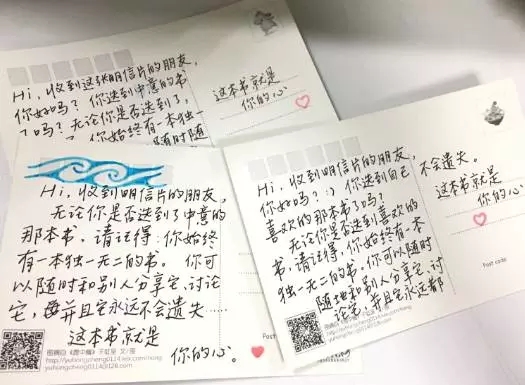 Hi,收到这张明信片的朋友,
你好吗?你选到中意的书
了吗?无论你是否选到了,
你始终有一本独一
随时随
这本书就是
你的心
Hi,收到明信片的朋友,
无论你是否选到了中意的
那本书,请记得:你始终
有一本独一无二的书。你可
以随时和别人分享它,讨论
它,并且它永远不会遗失……
这本书就是
你的心。
Hi,收到明信片的朋友,
你好吗?:)你选到自己
喜欢的那本书了吗?
无论你是否选到喜欢的
书,请记得,你始终有一本
独一无二的书。你可以随时
随地和别人分享它,讨
论它,并且它永远都
不会遗失。
这本书就是
你的心。
Post code